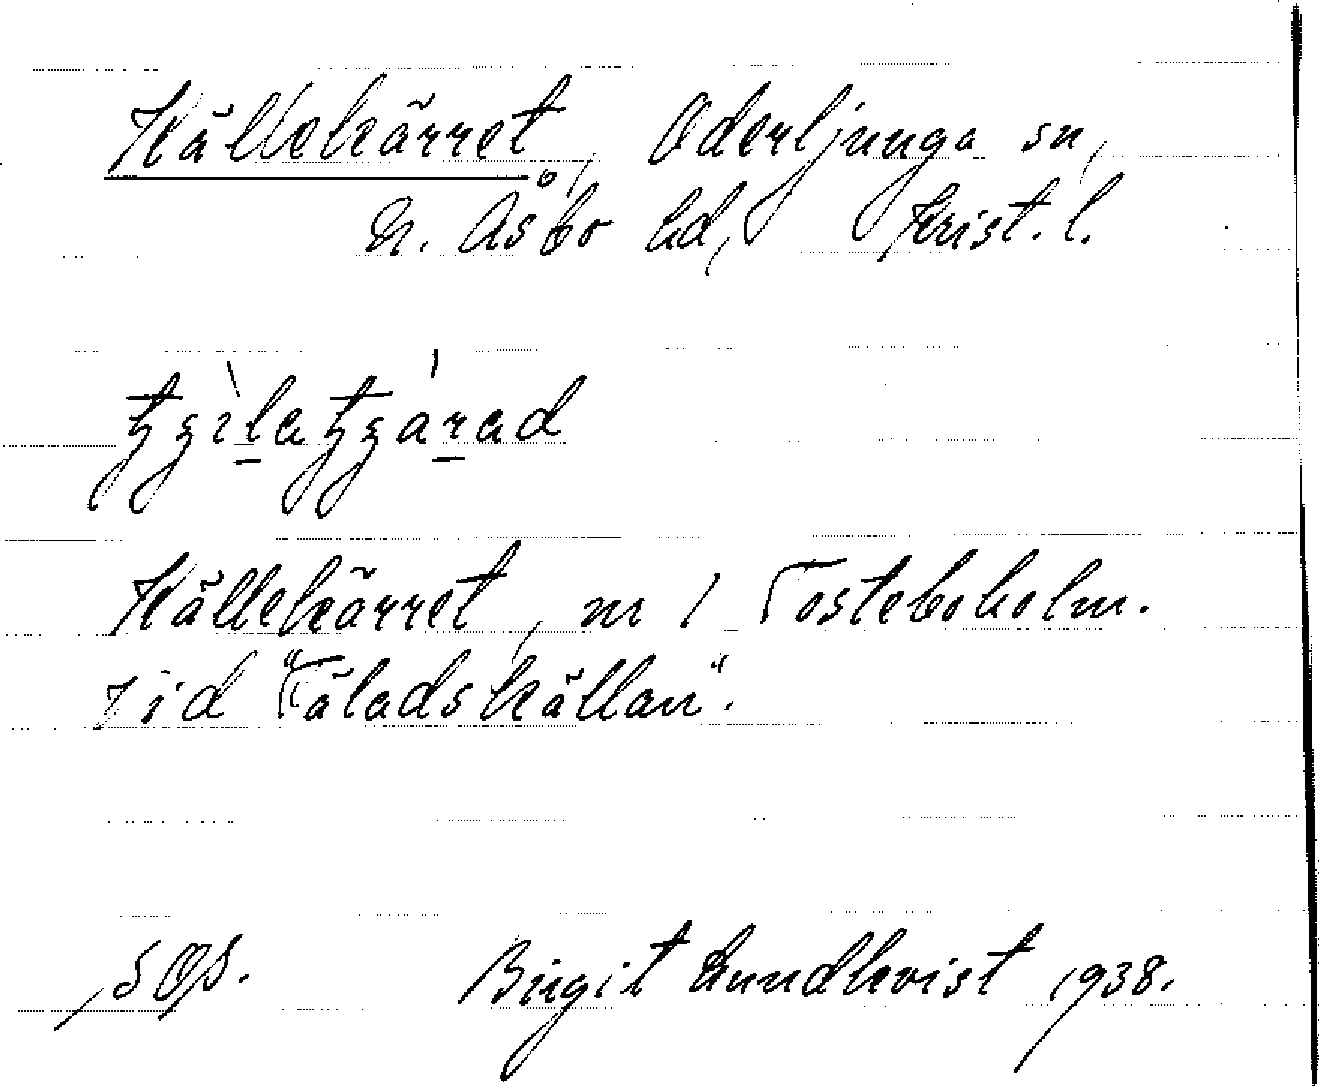 Källekärret, Oderljunga sn,
N. Åsbo hd, Krist. l.
Källekärret, nr 1 Tosteboholm.
vid "Täladskällan".
Birgit Lundkvist 1938.